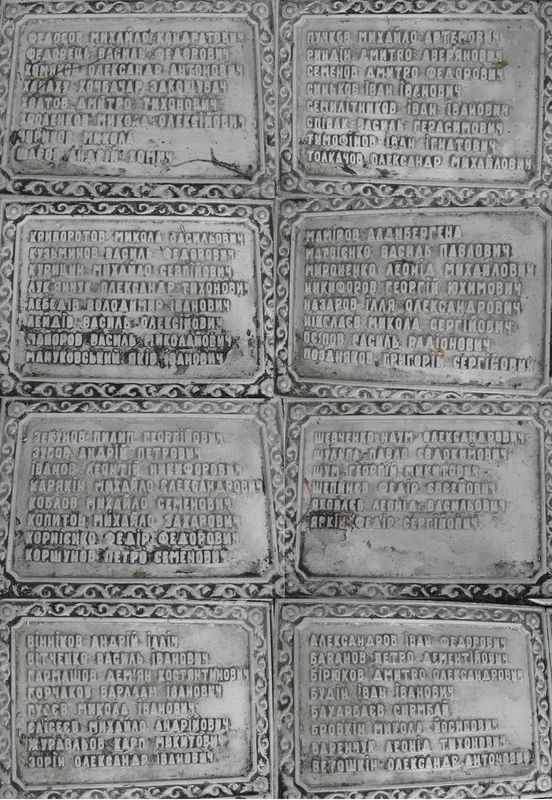 ФЕДОСОВ МИХАЙЛО КОНДРАТОВИЧ
ФЕДОРЕЦЬ ВАСИЛЬ ФЕДОРОВИЧ
ОЛЕКСАНДР АНТОНОВИЧ
ДМИТРО ТИХОНОВИЧ
МИКОЛА ОЛЕКСІЙОВИЧ
МИКОЛА
АНДРІЙ
ПУЧКОВ МИХАЙЛО АРТЕМОВИЧ
РИНДІН ДМИТРО АВЕРЯНОВИЧ
СЕМЕНОВ ДМИТРО ФЕДОРОВИЧ
СИНЬКОВ ІВАН ІВАНОВИЧ
СЕМИЛІТНИКОВ ІВАН ІВАНОВИЧ
СПІВАК ВАСИЛЬ ГЕРАСИМОВИЧ
ТИМОФІЙОВ ІВАН ІГНАТОВИЧ
ТОЛКАЧОВ ОЛЕКСАНДР МИХАЙЛОВИЧ
КРИВОРОТОВ МИКОЛА ВАСИЛЬОВИЧ
КУЗЬМИНОВ ВАСИЛЬ ФЕДОРОВИЧ
МИХАЙЛО СЕРГІЙОВИЧ
ОЛЕКСАНДР ТИХОНОВИЧ
ЛЕБЕДІВ ВОЛОДИМИР ІВАНОВИЧ
ВАСИЛЬ ОЛЕКСІЙОВИЧ
ВАСИЛЬ НИКОДИМОВИЧ
МАЦУКОВСЬКИЙ ЯКІВ ІВАНОВИЧ
АЛДИБЕРГЕНА
МАТВІЄНКО ВАСИЛЬ ПАВЛОВИЧ
МИРОНЕНКО ЛЕОНІД МИХАЙЛОВИЧ
НИКИФОРОВ ГЕОРГІЙ ЮХИМОВИЧ
НАЗАРОВ ІЛЛЯ ОЛЕКСАНДРОВИЧ
НІКОЛАЄВ МИКОЛА СЕРГІЙОВИЧ
ОСІПОВ ВАСИЛЬ РАДІОНОВИЧ
ПОЗДНЯКОВ ГРИГОРІЙ СЕРГІЙОВИЧ
ПИЛИП ГЕОРГІЙОВИЧ
ЗУБОВ АНДРІЙ ПЕТРОВИЧ
ІВАНОВ ЛЕОНІД НИКИФОРОВИЧ
МИХАЙЛО ОЛЕКСАНДРОВИЧ
КОБЛОВ МИХАЙЛО СЕМЕНОВИЧ
КОПИТОВ МИХАЙЛО ЗАХАРОВИЧ
КОРНІЄНКО ФЕДІР ФЕДОРОВИЧ
КОРШУНОВ ПЕТРО СЕМЕНОВИЧ
ШЕВЧЕНКО НАУМ ОЛЕКСАНДРОВИЧ
ПАВЛО ЄВДОКИМОВИЧ
ШУМ ГЕОРГІЙ МИКИТОВИЧ
ФЕДІР ЄВСЕЙОВИЧ
ЛЕОНІД ВАСИЛЬОВИЧ
ЯРКІН ФЕДІР СЕРГІЙОВИЧ
ВІННІКОВ АНДРІЙ ІЛЛІЧ
ВАСИЛЬ ІВАНОВИЧ
ГАРМАШОВ ДЕМ'ЯН КОСТЯНТИНОВИЧ
ГОРЧАКОВ ВАРЛААН ІВАНОВИЧ
ГУЗЄВ МИКОЛА ІВАНОВИЧ
МИХАЙЛО АНДРІЙОВИЧ
ЖУРАВЛЬОВ КАРО МІКИТОРИЧ
ЗОРІН ОЛЕКСАНДР ІВАНОВИЧ
АЛЕКСАНДРОВ ІВАН ФЕДОРОВИЧ
БАРАНОВ ПЕТРО ДЕМЕНТІЙОВИЧ
БІРЮКОВ ДМИТРО ОЛЕКСАНДРОВИЧ
БУДІН ІВАН ІВАНОВИЧ
БАХАРБАЄВ СИРИМБАЙ
БРОВКІН МИКОЛА ЙОСИПОВИЧ
ВАРЕНЧУК ЛЕОНІД ТИХОНОВИЧ
ВЕТОШКІН ОЛЕКСАНДР АНТОНОВИЧ